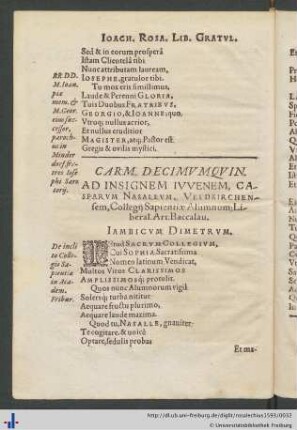 IOACH. ROSA. LIB. GRATVL.
Sed & in eorum prosperâ
Istam Clientelâ tibi
Nunc attributam lauream,
IOSEPHE, gratulor tibi.
Tu mox eris simillimus,
Laude & Perenni GLORIA,
Tuis Duobus FRATRIBVS,
GEORGIO, & IOANNE: quo.
Vtroq; nullus acrior,
Et nullus eruditior
MAGISTER, atq; Pastor est
Gregis & ovilis mystici.
RR. DD.
M. Ioan.
pie
mem. &
M. Geor.
eius suc-
cessor,
paroch-
us in
Minder
dorf, fra-
tres Iose
phi Sar-
torij.
CARM. DECIMVMQVIN.
AD INSIGNEM IVVENEM, CA-
SPARVM NASALEVM, VELDKIRCHEN-
sem, Collegij Sapientiæ Alumnum, Li-
beral. Art. Baccalau.
IAMBICVM DIMETRVM.
Istud SACRVM COLLEGIVM,
Cui SOPHIA Sacratissima
Nomen latinum Vendicat,
Multos Viros CLARISSIMOS
AMPLISSIMOSq; protulit.
Quos nunc Alumnorum vigil
Solersq; turba nititur
Aequare fructu plurimo,
Aequare laude maxima.
Quod tu, NASALE, gnauiter
Te cogitare, & unicâ
Optare, sedulis probas
De incli
to Colle-
gio Sa-
pientiæ
in Aca-
dem.
Fribur.
Et ma-
http://dl.ub.uni-freiburg.de/diglit/rosalechius1593/0032
© Universitätsbibliothek Freiburg